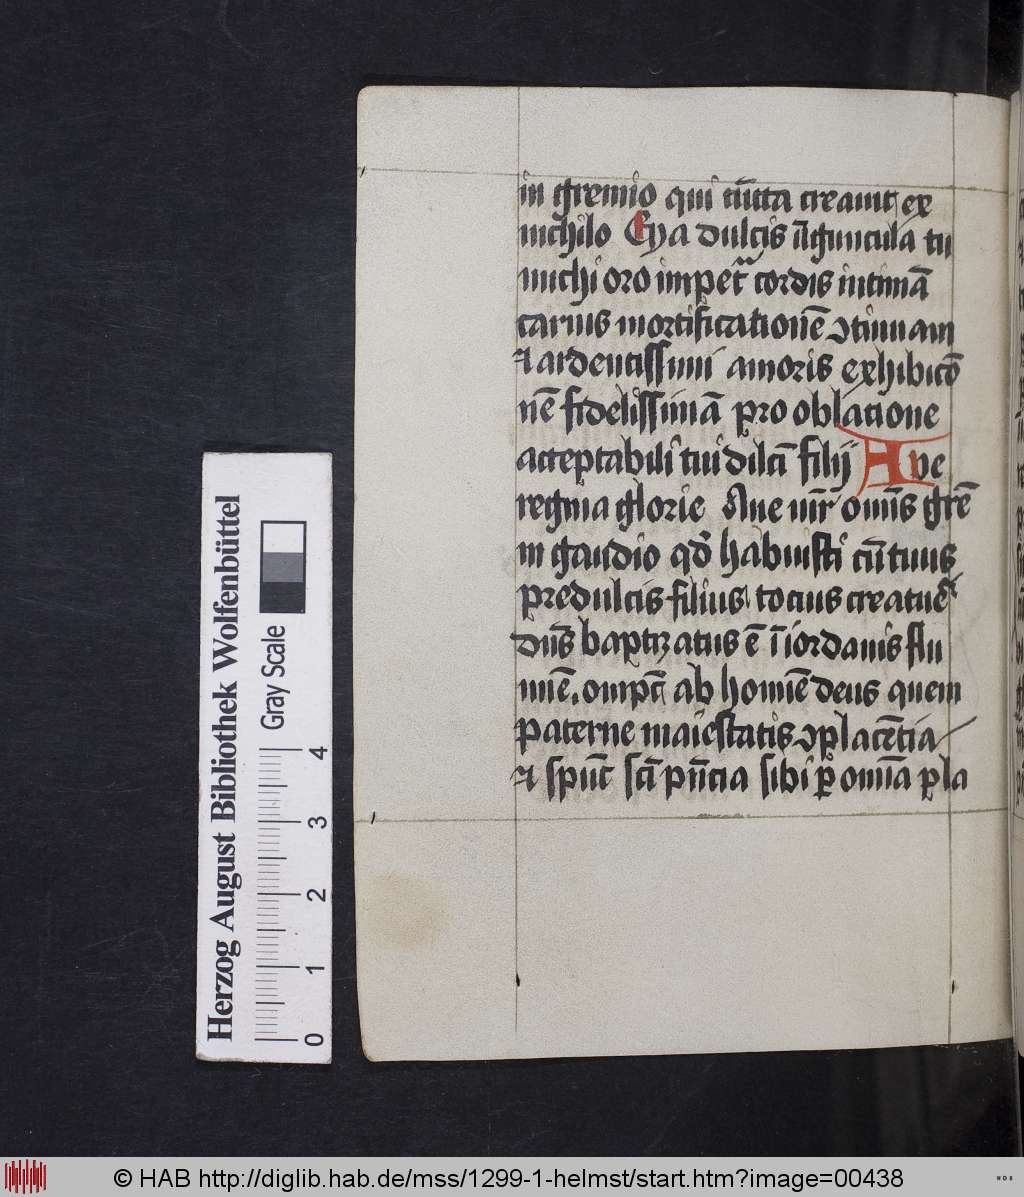 in gremio qui cūcta creauit ex
nichilo Eya dulcis v̄guncula tu
michi oro impetᷓ cordis intimā
carnis mortificationē ꝯtinuam
⁊ ardentissimi amoris exhibicō
nē fidelissimā pro oblatione
acceptabili tui dilc̄i filij Aue
regina glorie Aue om̄s
in gaudio qd̄ habuisti cū tuus
predulcis filius tocius creature
dn̄s baptizatus ē ī iordanis flu
mīe. ompc̄ ab homīe deus quem
paterne maiestatis ꝯplacētia
⁊ spūc̄ sc̄i pn̄cia sibi ꝑ omīa ꝑla
Herzog August Bibliothek Wolfenbüttel
Gray Scale
0 1 2 3 4
© HAB http://diglib.hab.de/mss/1299-1-helmst/start.htm?image=00438